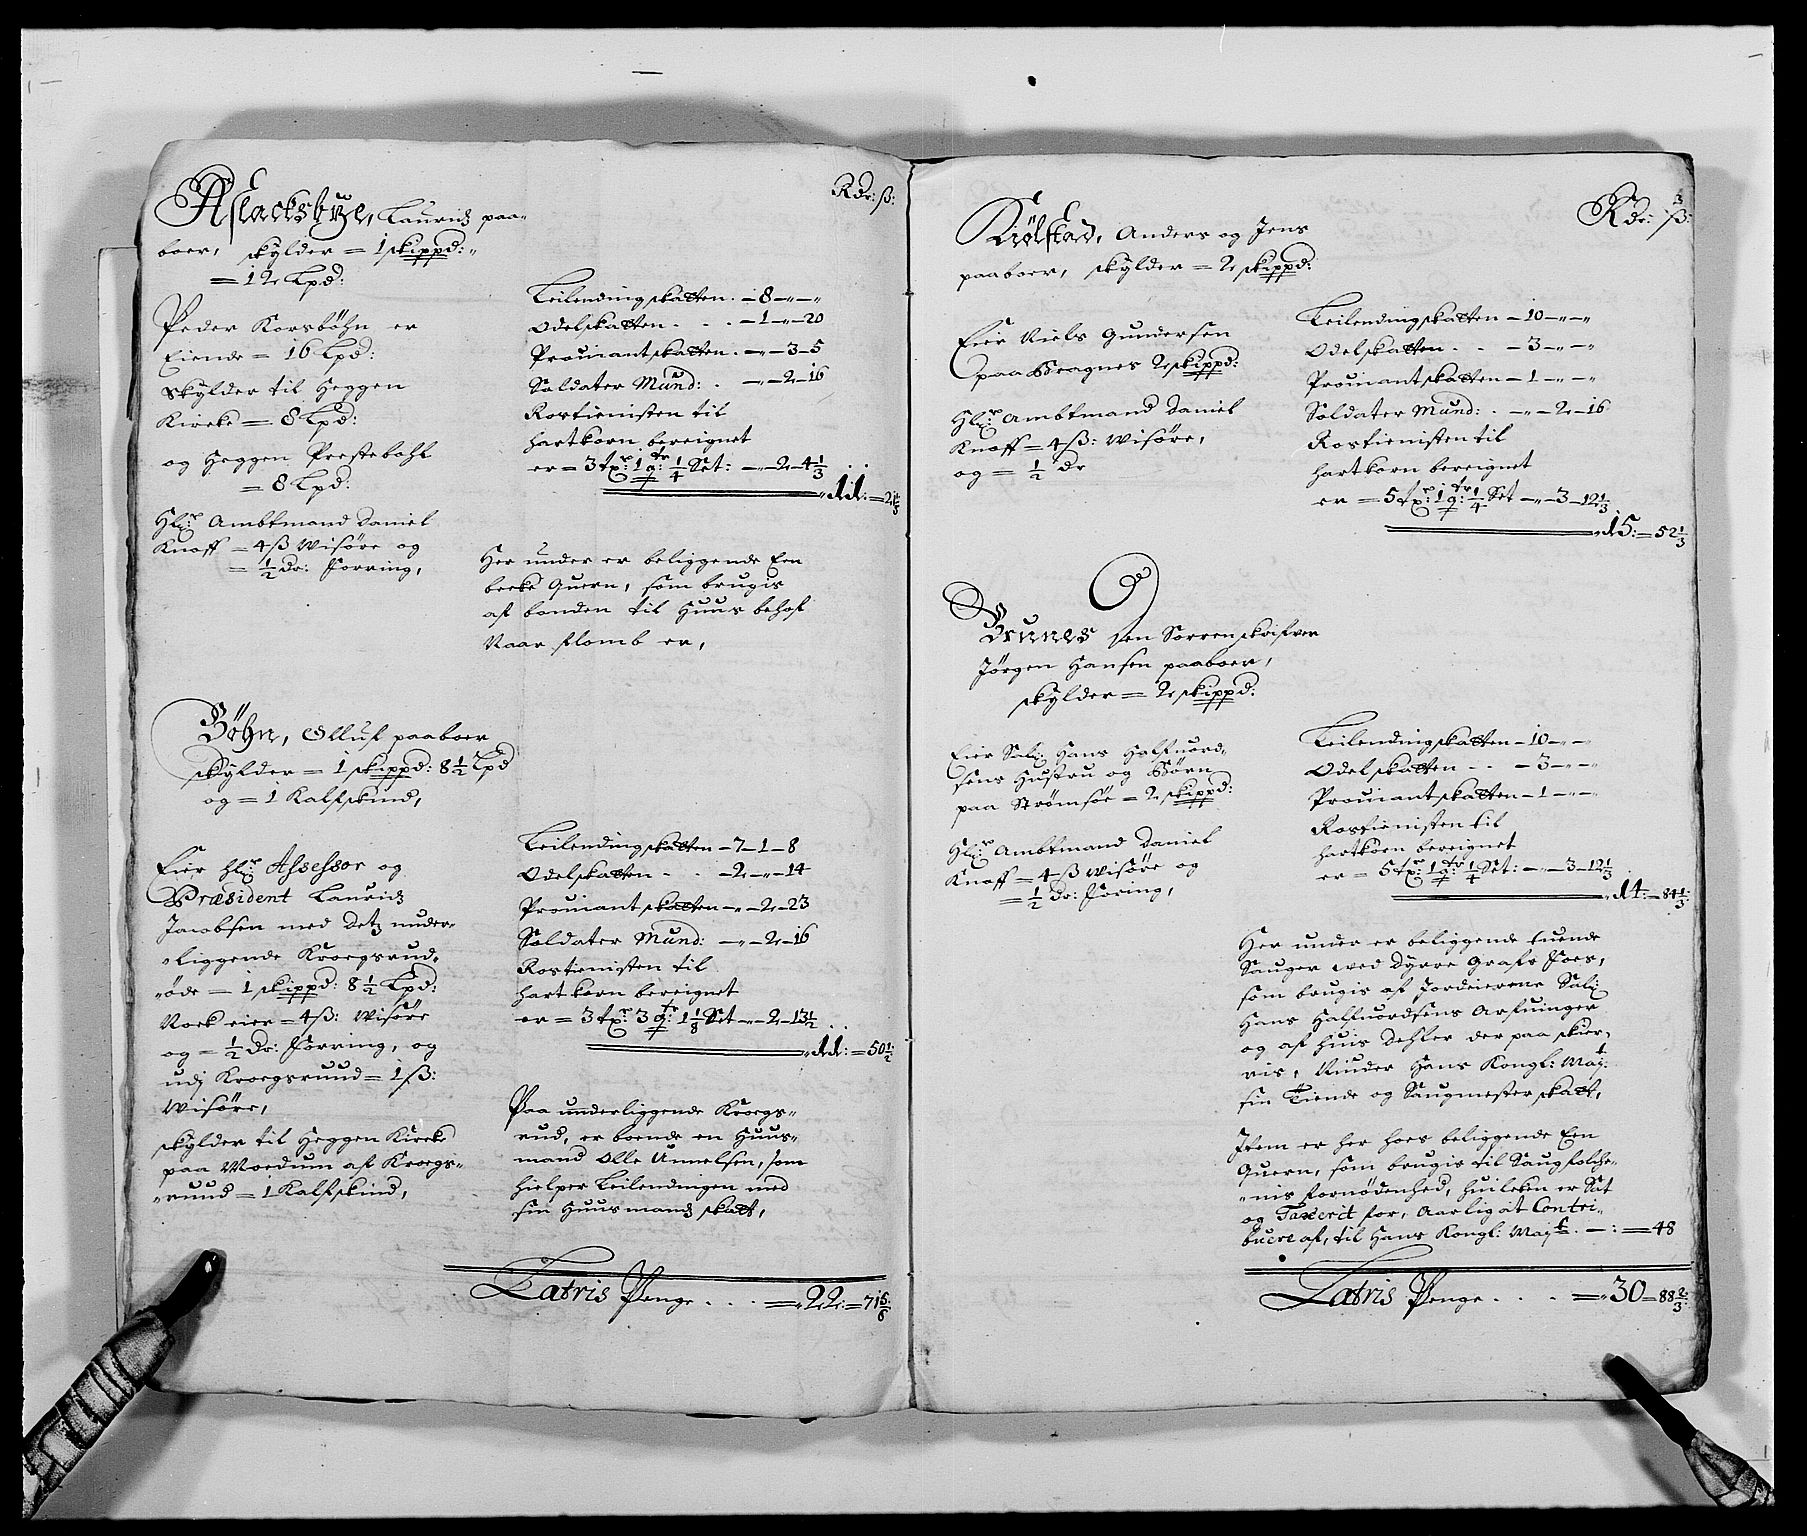 Rdr: ß:
Aslacksbye, Lauridz paa-
boer, skylder = 1 skippd:
= 12 Lpd:
Peder Korsbøhn er
Eiende = 16 Lpd:
skylder til Heggen
Kircke = 8 Lpd:
og Heggen Prestebohl
= 8 Lpd:
Hl:r Ambtmand Daniel
Knoff = 4 ß Wisøre og
= 1/2 Dr: Forring,
Leilending skatten. – 8 – „ – „
Odelskatten . . . – 1 – „ – 20
Prouiant skatten. – „ – 3 – 5
Soldater Mund: . – „ – 2 – 16
Rostienisten til
hartkorn bereignet
er = 3 tx: 1 q: 1/4 Set: – „ – 2 – 4 1/3
11: = 21 1/3
Her under er beliggende Een
becke Quern, som brugis
af bonden til Huus behof
Naar flomb er,
Bøhn, Olluf paaboer
skylder = 1 skippd: 8 1/2 Lpd
og = 1 Kalfskind,
Eier Hl:r Assessor og
Præsident Lauridz
Jacobsen med Detz under-
liggende Kroegsrud-
øde = 1 skippd: 8 1/2 Lpd:
Noch eier = 4 ß: Wisøre
og = 1/2 Dr: Forring, og
udj Kroegsruud = 1 ß:
Wisøre,
skylder til Heggen Kircke
paa Moedum af Kroegs-
ruud = 1 Kalfskind,
Leilending skatten – 7 – 1 – 8
Odelskatten . . – 2 – „ – 14
Prouiant skatten – „ – 2 – 23
Soldater Mund: – „ – 2 – 16
Rostienisten til
hartkorn bereignet
er = 3 tx: 3 q: 1 1/8 Set – „ – 2 – 13 1/2
11: = 50 1/2
Paa underliggende Kroegs-
rud, er boende en Huus-
mand Olle Annelsen, som
hielper Leilendingen med
sin Huusmandz skatt,
Latris Penge . . . = 22: = 71 5/6
Rdr: ß:
Kiølstad, Anders og Jens
paaboer, skylder = 2 skippd:
Eier Niels Gundersen
paa Bragnes 2 skippd:
Hl:r Ambtmand Daniel
Knoff = 4 ß: Wisøre,
og = 1/2 Dr
Leilending skatten – 10 – „ – „
Odelskatten . . – 3 – „ – „
Prouiant skatten – 1 – „ – „
Soldater Mund: . – „ – 2 – 16
Rostienisten til
hartkorn bereignet
er = 5 tx: 1 q: 1/4 Set – „ – 3 – 12 1/3
15: = 52 1/3
Brunes sen Sorrenskrifver
Jørgen Hansen paaboer,
skylder = 2 skippd:
Eier Sal: Hans Halfuord-
sens Hustru og Børn
paa Strømsøe = 2 skippd:
Hl:r Ambtmand Daniel
Knoff = 4 ß Wisøre og
= 1/2 Dr: Foring,
Leilending skatten – 10 – „ –
Odelskatten . . – 3 – „ –
Prouiant skatten – 1 – „ –
Rostienisten til
hartkorn bereignet
er = 5 tx: 1 q: 1/4 Set: – „ – 3 – 12 1/3
14: = 84 1/3:
Her under er beliggende tuende
Sauger wed Dyrre Grafs Foes,
som brugis af Jordeierene Sal:
Hans Halfuordsens Arfuinger
og af huis Dehler der paa skier-
ris, Niuder Hans Kongl: Maj:t
sin Tiende og Saugmester skatt,
Item er her hoes beliggende Een
Quern, som brugis til Saugfolche-
nis fornødenhed, huilcken er Sat
og Taxerit for, Aarlig at Contri-
buere af, til Hans Kongl: Maj:t . – : = 48
Latris Penge . . . = 30 = 88 2/3: